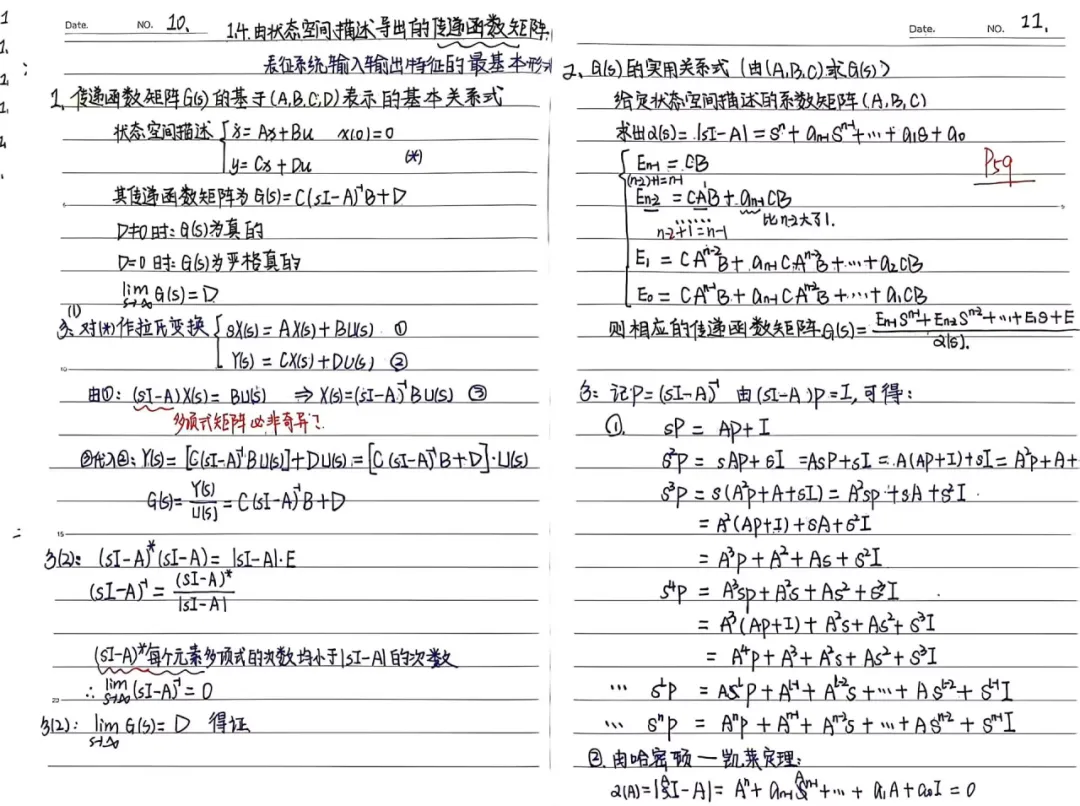 Date. NO. 10.
1.4.由状态空间描述导出的传递函数矩阵.
表征系统输入输出特征的最基本形
1、传递函数矩阵G(s)的基于(A,B,C,D)表示的基本关系式
状态空间描述{ẋ=Ax+Bu x(0)=0
y=Cx+Du (*)
其传递函数矩阵为G(s)=C(sI-A)⁻¹B+D
D≠0时:G(s)为真的
D=0时:G(s)为严格真的
lim G(s)=D
s→∞
(1)
对(*)作拉氏变换{sX(s)=AX(s)+BU(s) ①
Y(s)=CX(s)+DU(s) ②
由①:(sI-A)X(s)=BU(s) ⇒X(s)=(sI-A)⁻¹BU(s) ③
多项式矩阵必非奇异
③代入②:Y(s)=[C(sI-A)⁻¹BU(s)]+DU(s)=[C(sI-A)⁻¹B+D]·U(s)
G(s)=Y(s)/U(s)=C(sI-A)⁻¹B+D
(2): (sI-A)*(sI-A)=|sI-A|·E
(sI-A)⁻¹=(sI-A)*/|sI-A|
(sI-A)*每个元素多项式的次数均小于|sI-A|的次数
∴ lim (sI-A)⁻¹=0
s→∞
(2): lim G(s)=D 得证
s→∞
Date. NO. 11.
2、G(s)的实用关系式(由(A,B,C)求G(s))
给定状态空间描述的系数矩阵(A,B,C)
求出α(s)=|sI-A|=sⁿ+aₙ₋₁sⁿ⁻¹+…+a₁s+a₀
Eₙ₋₁=CB P59
(n-2)+1=n-1
Eₙ₋₂=CA¹B+aₙ₋₁CB
比n-2大了1.
n-2+1=n-1 ……
E₁=CAⁿ⁻²B+aₙ₋₁CAⁿ⁻³B+…+a₂CB
E₀=CAⁿ⁻¹B+aₙ₋₁CAⁿ⁻²B+…+a₁CB
则相应的传递函数矩阵G(s)=Eₙ₋₁sⁿ⁻¹+Eₙ₋₂sⁿ⁻²+…+E₁s+E/α(s).
记P=(sI-A)⁻¹ 由(sI-A)P=I,可得:
①. sP=AP+I
s²P=sAP+sI=AsP+sI=A(AP+I)+sI=A²P+A+
s³P=s(A²P+A+sI)=A²sP+sA+s²I
=A²(AP+I)+sA+s²I
=A³P+A²+As+s²I
s⁴P=A³sP+A²s+As²+s³I
=A³(AP+I)+A²s+As²+s³I
=A⁴P+A³+A²s+As²+s³I
… sᶦP=AsᶦP+Aᶦ⁻¹+Aᶦ⁻²s+…+Asᶦ⁻²+sᶦ⁻¹I
… sⁿP=AⁿP+Aⁿ⁻¹+Aⁿ⁻²s+…+Asⁿ⁻²+sⁿ⁻¹I
②.由哈密顿—凯莱定理:
α(A)=|sI-A|=Aⁿ+aₙ₋₁Aⁿ⁻¹+…+a₁A+a₀I=0